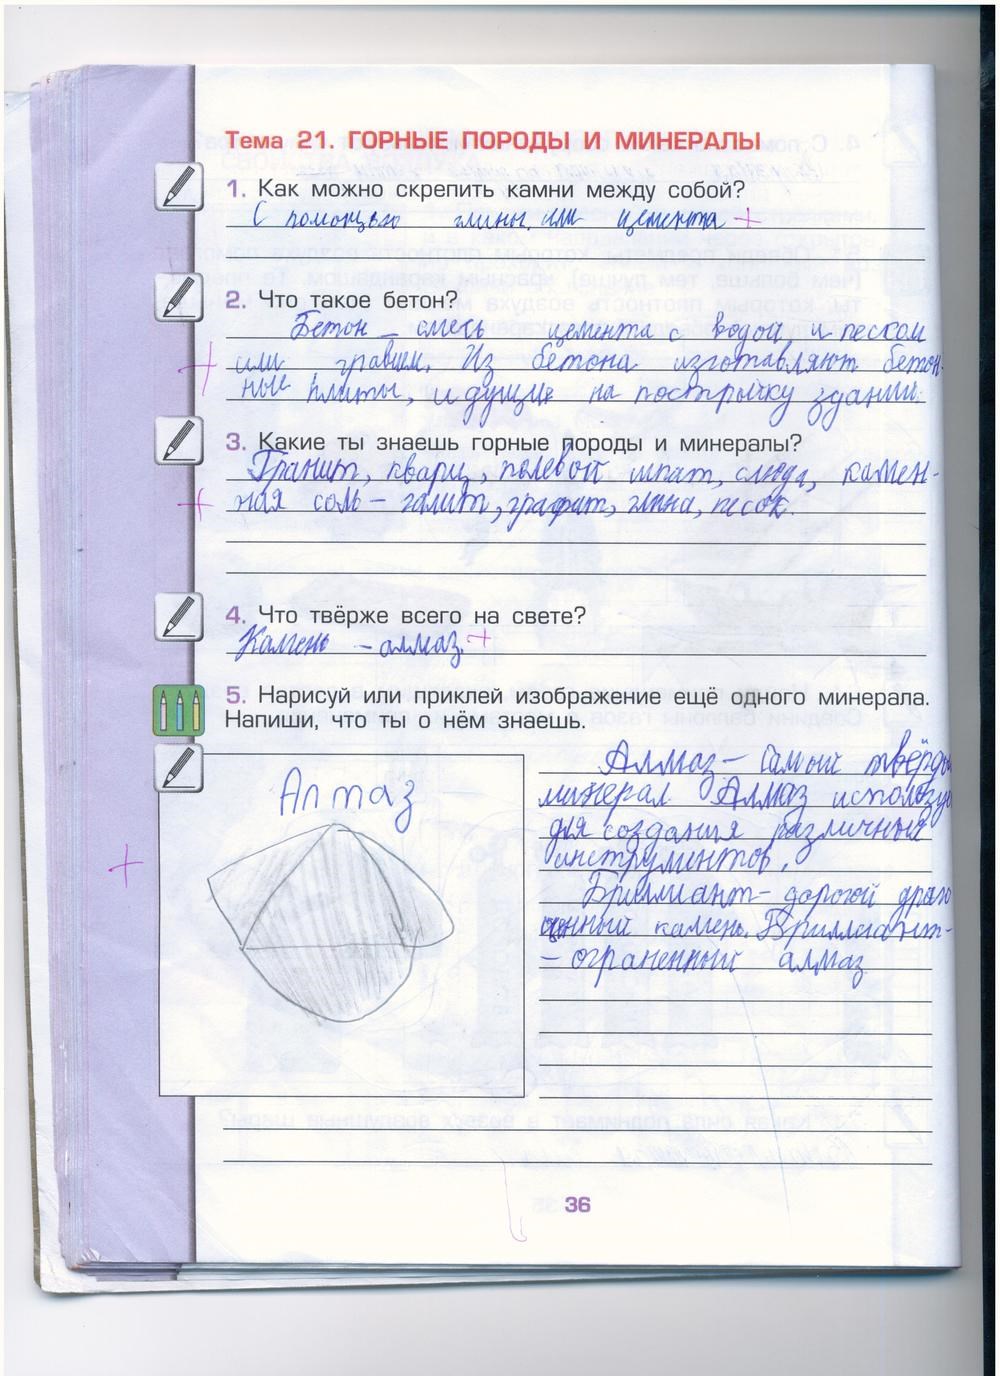 Тема 21. ГОРНЫЕ ПОРОДЫ И МИНЕРАЛЫ
1. Как можно скрепить камни между собой?
С помощью глины или цемента +
2. Что такое бетон?
Бетон - смесь цемента с водой и песком
+ или гравием. Из бетона изготавляют бетон-
ные плиты, идущие на постройку зданий.
3. Какие ты знаешь горные породы и минералы?
Гранит, кварц, полевой шпат, слюда, камен-
+ ная соль - галит, графит, глина, песок.
4. Что твёрже всего на свете?
Камень - алмаз. +
5. Нарисуй или приклей изображение ещё одного минерала.
Напиши, что ты о нём знаешь.
Алмаз
+
Алмаз - самый твёрды
минерал Алмаз использу
для создания различных
инструментов.
Бриллиант - дорогой драго
ценный камень. Бриллиант-
- ограненный алмаз
36